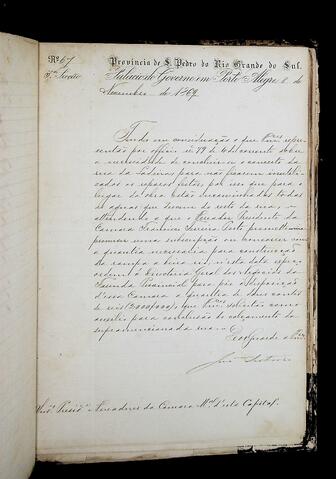 Nº 67
Provincia de S. Pedro do Rio Grande do Sul.
3ª Secção
Palacio do Governo em Porto Alegre 8 de
Novembro de 1869.
Tendo em consideração o que Vmces repre-
sentão por officio nº 79 de 6 do corrente sobre
a necessidade de concluir-se o concerto da
rua da Ladeira para não ficarem inutili-
sados os reparos feitos, por isso que para o
lugar da obra estão encaminhadas todas
as aguas que descem do resto da rua; e
attendendo a que o Vereador Presidente da
Camara Francisco Ferreira Porto prometteu
promover uma subscripção ou
a quantia necessaria para a construcção
da rampa a
ordem á Directoria Geral dos Negocios da
Fazenda Provincial para pôr á disposição
d'essa Camara a quantia de dous contos
de reis (2:000$000), que Vmces solicitão como
auxilio para conclusão do calçamento da
supramencionada rua.
Deos Guarde a Vmces
Snrs. Preside e Vereadores da Camara Mal d'esta Capital.